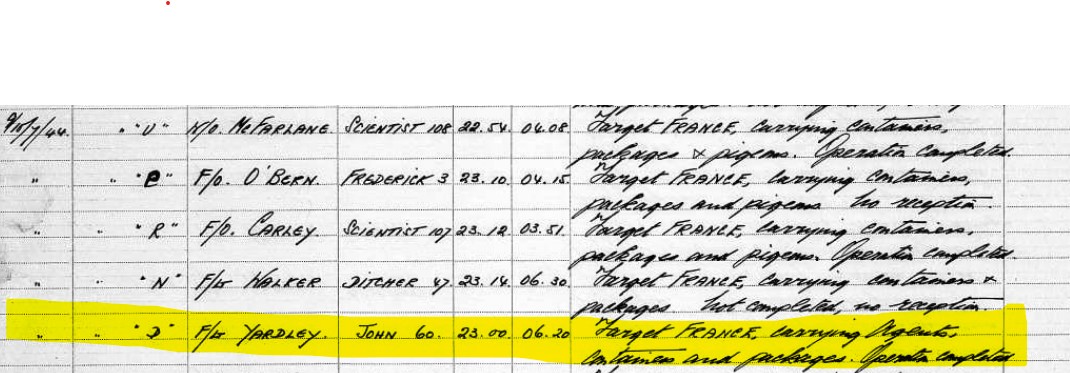 9/10/7/44. " "U" W/O. McFARLANE. SCIENTIST 108 22.54. 04.08. Target FRANCE, carrying containers,
packages & pigeons. Operation completed.
" " "E" F/O. O'BERN. FREDERICK 3 23.10. 04.15. Target FRANCE, carrying containers,
packages and pigeons. No reception.
" " "R" F/O. CARLEY SCIENTIST 107 23.12 03.51. Target FRANCE, carrying containers,
packages and pigeons. Operation completed.
" " "N" F/Lt WALKER DITCHER 47. 23.14 06.30 Target FRANCE, carrying containers &
packages. Not completed, no reception.
" " "J" F/Lt YARDLEY. JOHN 60. 23.00 06.20 Target FRANCE, carrying Agents,
containers and packages. Operation completed